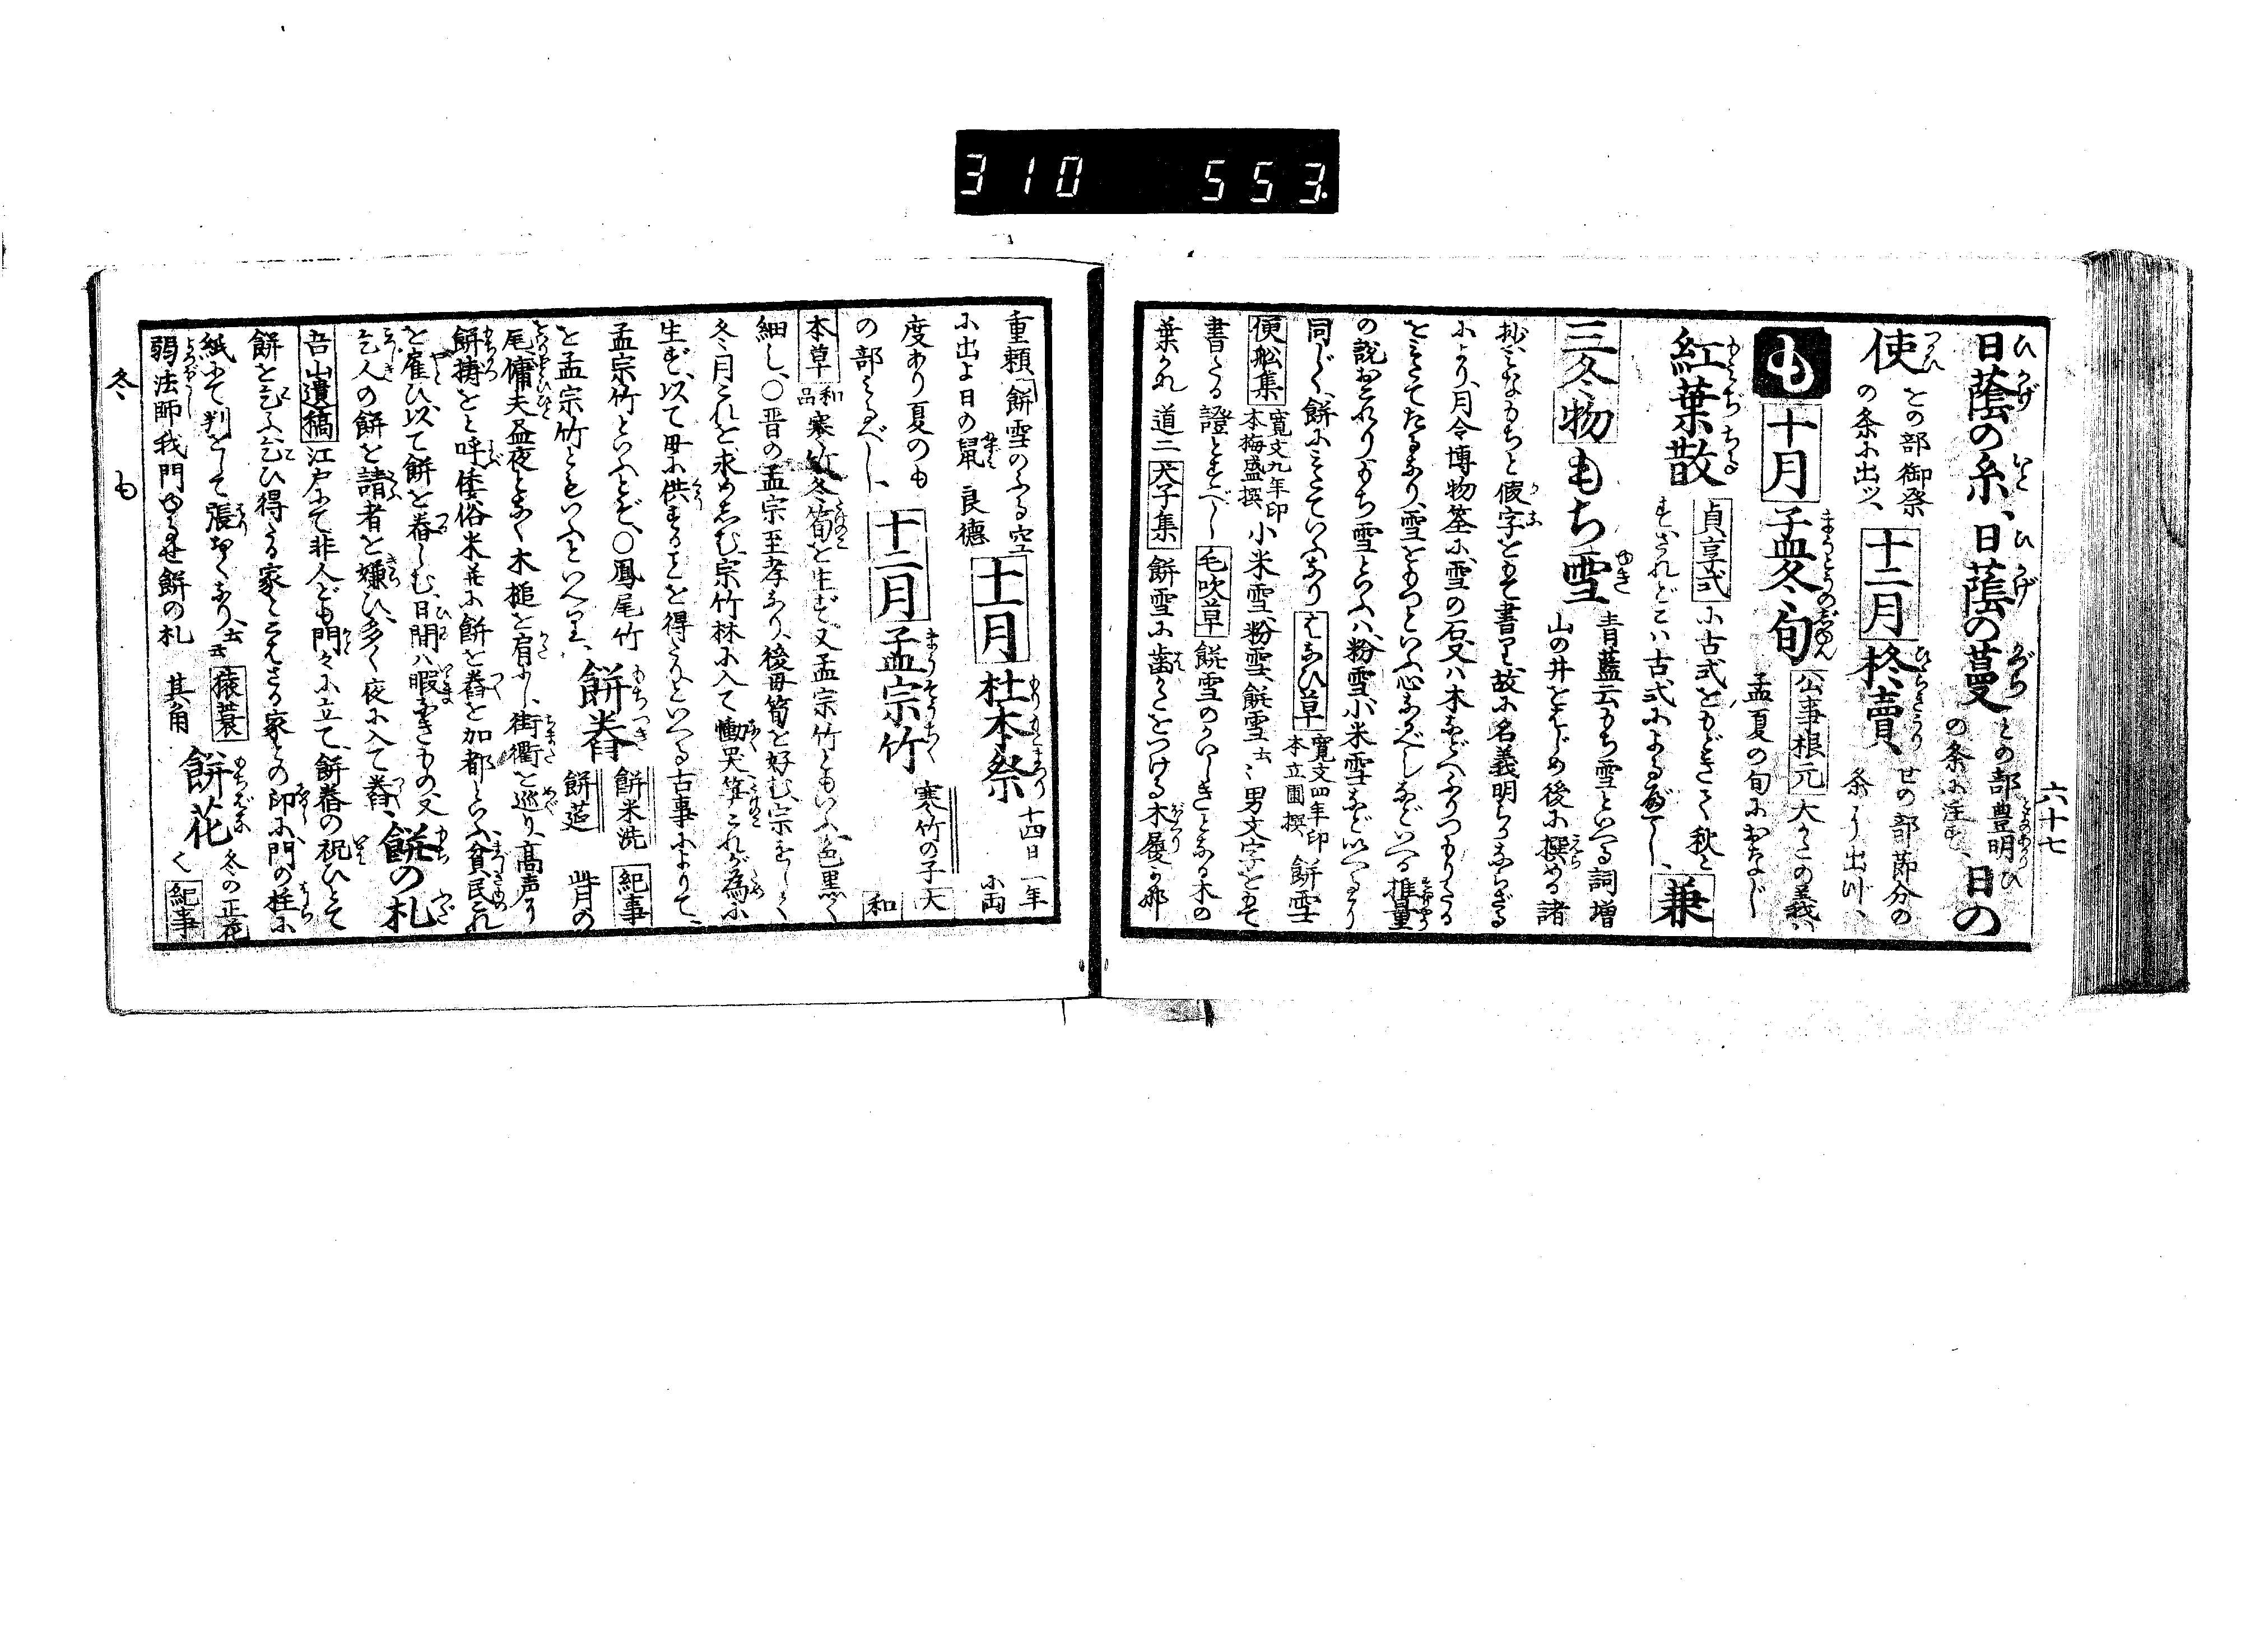 310 553.
六十七
日蔭の糸、日蔭の蔓 との部豊明の条に注す、日の
使 との部御祭の条に出ツ、十二月 柊賣 せの部節分の条に出ツ、
も 十月 孟冬旬 公事根元 大かたの義ハ孟夏の旬におなじ
紅葉散 貞享式 に古式を 秋と 兼
三冬物 もち雪 青藍云もち雪といへる詞増山の井をはじめ後に撰める諸
抄、みなもちと假字をもて書り、故に名義明らかならざる
により、月令博物筌に、雪の石又ハ木などへふりつもりたる
をみたてたるなり、雪をもつといふ心なるべしなどいへる推量
の説おこれり、もち雪といふハ、粉雪、小米雪などいへるより
同じく、餅にみたていふなり はなひ草 寛文四年印本立圃撰 餅雪
便船集 寛文九年印本梅盛撰 小米雪、粉雪、餅雪云〻男文字をもて
書たる證とすべし 毛吹草 餅雪の 木の
葉かれ 道二 犬子集 餅雪に歯かたをつける木履かな
重頼、餅雪のふる空
に出よ日の鼠 良徳 十一月 杜本祭 十四日一年に両
度あり夏のも
の部みるべし、十二月 孟宗竹 寒竹の子 大和
本草 和品 寒竹冬筍を生ず又孟宗竹ともいふ、色黒く
細し、〇晋の孟宗至孝なり、後母筍を好む、宗をして
冬月これを求めしむ、宗竹林に入て慟哭、筍これが為に
生ず、以て母に供することを得たりといへる古事によりて、
孟宗竹といふとぞ、〇鳳尾竹
を孟宗竹ともいふといへり、餅舂 餅米洗 餅莚 紀事 此月の
尾傭夫昼夜となく木槌を肩にし、街衢を巡り、高声に
餅搗と呼倭俗米并に餅を舂を加都といふ、貧民これ
を雇ひ、以て餅を舂しむ、日間ハ暇なきもの、又
乞人の餅を請者を嫌ひ、多く夜に入て舂、餅の札
吾山遺稿 江戸にて非人ども門々に立て、餅舂の祝ひとて
餅を乞ふ乞ひ得たる家とえざる家との印に、門の柱に
紙にて判をして張おくなり、云云 猿蓑 餅花 冬の正花
弱法師我門ゆるせ餅の札 其角 く 紀事
冬 も